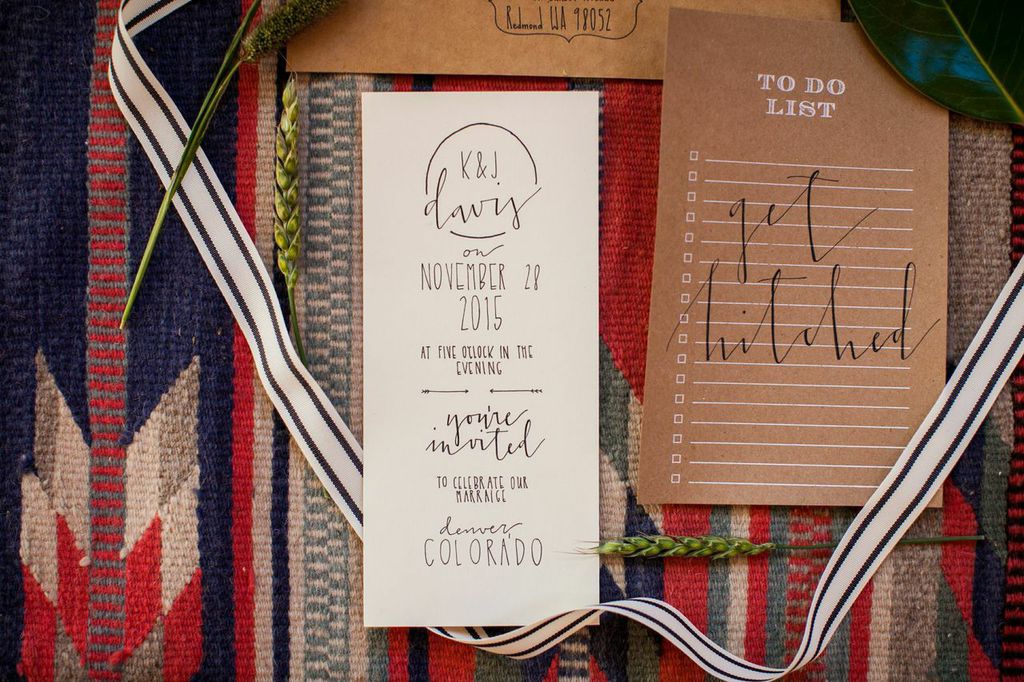 Redmond WA 98052
K&J
davis
on
NOVEMBER 28
2015
AT FIVE O'CLOCK IN THE
EVENING
you're
invited
TO CELEBRATE OUR
MARRAIGE
denver
COLORADO
TO DO
LIST
get
hitched